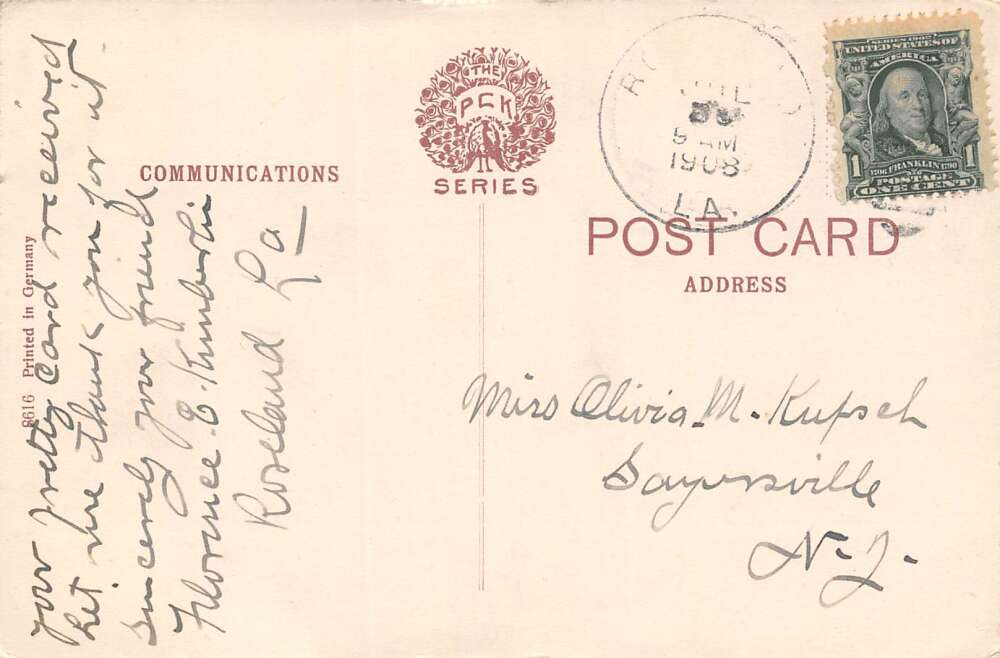 Your pretty card received
Let me thank you for it
Sincerely your friend
Florence E. Kimberlin
Roseland La
COMMUNICATIONS
Printed in Germany
THE
PCK
SERIES
9 AM
1908
LA.
SERIES 1902
UNITED STATES OF
AMERICA
1
1
1706 FRANKLIN 1790
POSTAGE
ONE CENT
POST CARD
ADDRESS
Miss Olivia M. Kupsch
Sayersville
N.J.